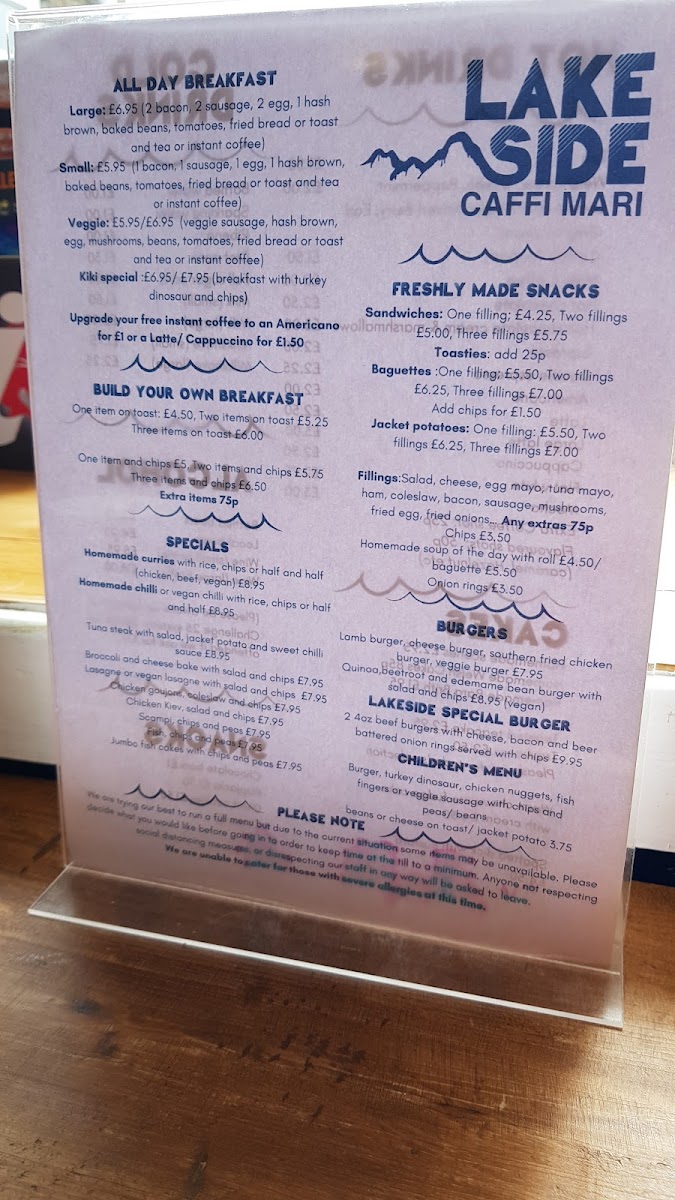 ALL DAY BREAKFAST
Large: £6.95 (2 bacon, 2 sausage, 2 egg, 1 hash
brown, baked beans, tomatoes, fried bread or toast
and tea or instant coffee)
Small: £5.95 (1 bacon, 1 sausage, 1 egg, 1 hash brown,
baked beans, tomatoes, fried bread or toast and tea
or instant coffee)
Veggie: £5.95/£6.95 (veggie sausage, hash brown,
egg, mushrooms, beans, tomatoes, fried bread or toast
and tea or instant coffee)
Kiki special :£6.95/ £7.95 (breakfast with turkey
dinosaur and chips)
Upgrade your free instant coffee to an Americano
for £1 or a Latte/ Cappuccino for £1.50
BUILD YOUR OWN BREAKFAST
One item on toast: £4.50, Two items on toast £5.25
Three items on toast £6.00
One item and chips £5, Two items and chips £5.75
Three items and chips £6.50
Extra items 75p
SPECIALS
Homemade curries with rice, chips or half and half
(chicken, beef, vegan) £8.95
Homemade chilli or vegan chilli with rice, chips or half
and half £8.95
Tuna steak with salad, jacket potato and sweet chilli
sauce £8.95
Broccoli and cheese bake with salad and chips £7.95
Lasagne or vegan lasagne with salad and chips £7.95
Chicken goujons, coleslaw and chips £7.95
Chicken Kiev, salad and chips £7.95
Scampi, chips and peas £7.95
Fish, chips and peas £7.95
Jumbo fish cakes with chips and peas £7.95
LAKE
SIDE
CAFFI MARI
FRESHLY MADE SNACKS
Sandwiches: One filling; £4.25, Two fillings
£5.00, Three fillings £5.75
Toasties: add 25p
Baguettes :One filling; £5.50, Two fillings
£6.25, Three fillings £7.00
Add chips for £1.50
Jacket potatoes: One filling: £5.50, Two
fillings £6.25, Three fillings £7.00
Fillings:Salad, cheese, egg mayo, tuna mayo,
ham, coleslaw, bacon, sausage, mushrooms,
fried egg, fried onions... Any extras 75p
Chips £3.50
Homemade soup of the day with roll £4.50/
baguette £5.50
Onion rings £3.50
BURGERS
Lamb burger, cheese burger, southern fried chicken
burger, veggie burger £7.95
Quinoa,beetroot and edemame bean burger with
salad and chips £8.95 (vegan)
LAKESIDE SPECIAL BURGER
2 4oz beef burgers with cheese, bacon and beer
battered onion rings served with chips £9.95
CHILDREN'S MENU
Burger, turkey dinosaur, chicken nuggets, fish
fingers or veggie sausage with chips and
peas/ beans
beans or cheese on toast/ jacket potato 3.75
PLEASE NOTE
We are trying our best to run a full menu but due to the current situation some items may be unavailable. Please
decide what you would like before going in order to keep time at the till to a minimum. Anyone not respecting
social distancing measures, or disrespecting our staff in any way will be asked to leave.
We are unable to cater for those with severe allergies at this time.